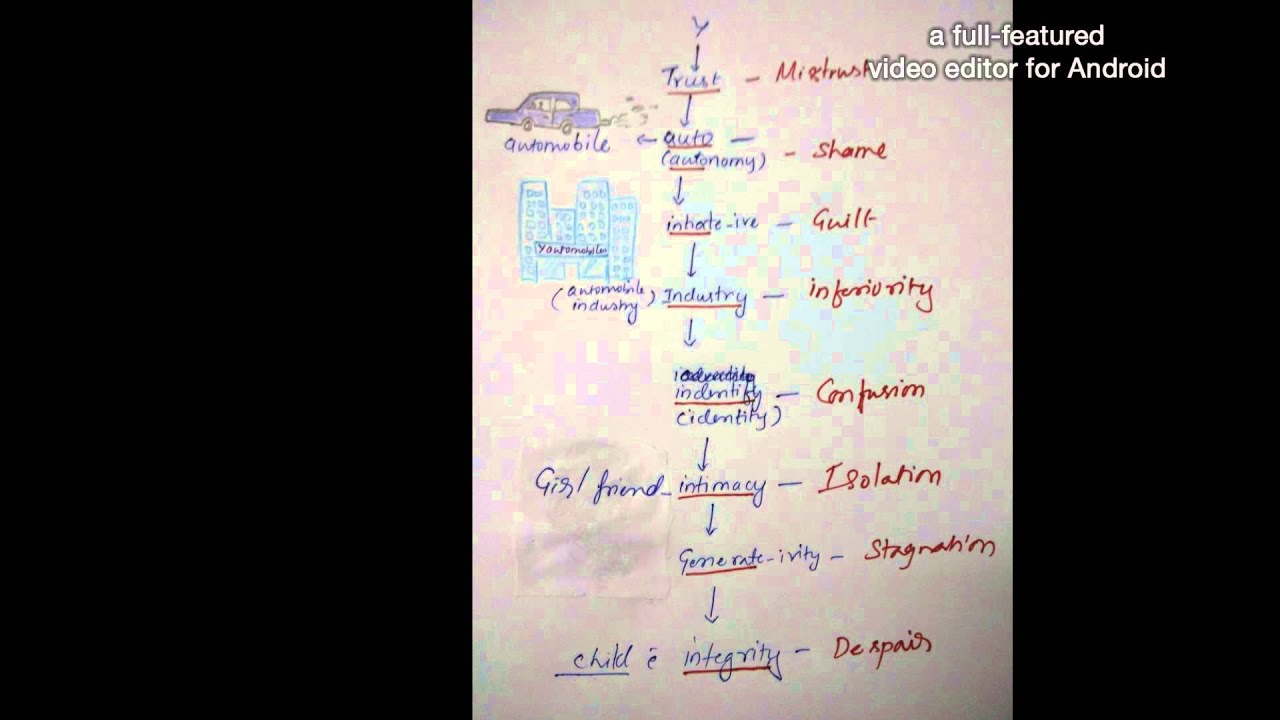 a full-featured
video editor for Android
Y
Trust - Mistrust
automobile ← auto —
(autonomy) - Shame
initiate-ive - Guilt
Yautomobiles
(automobile industry) Industry — inferiority
indentify — Confusion
(identity)
Girl friend - intimacy — Isolation
Generate-ivity - Stagnation
child ē integrity - Despair